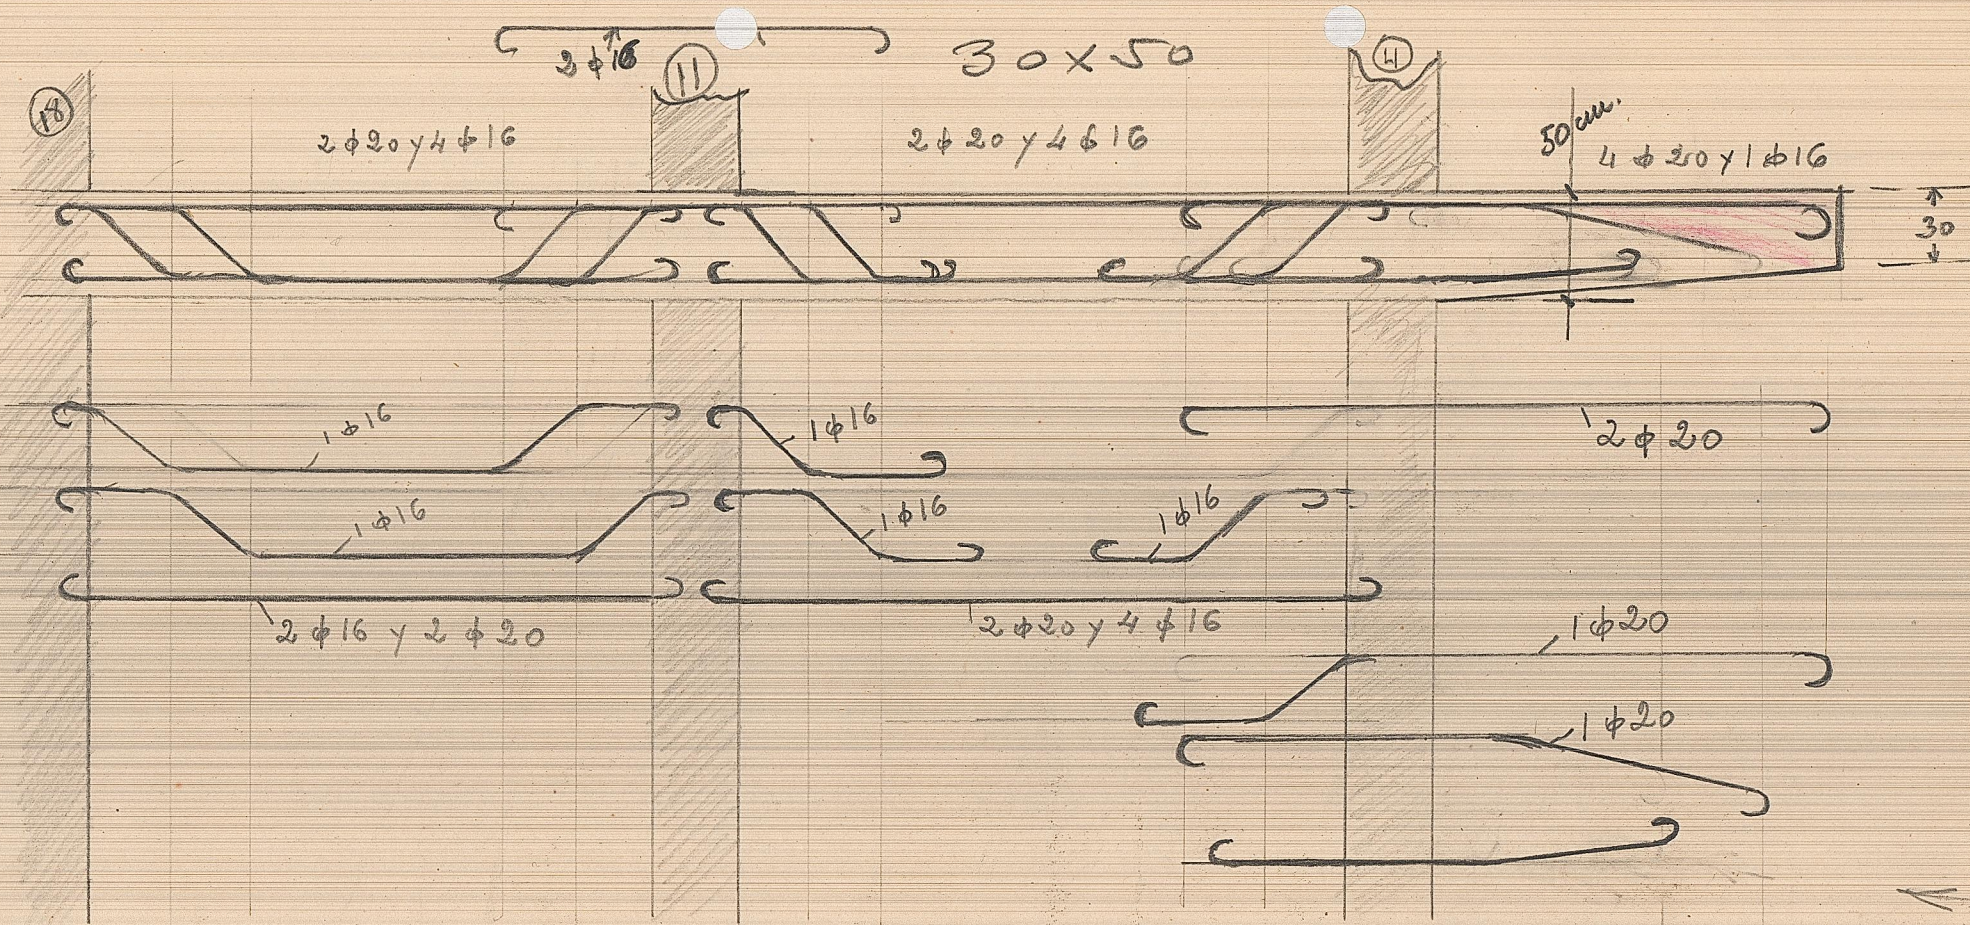 2ϕ16
30x50
18
11
4
2ϕ20 y 4ϕ16
2ϕ20 y 4ϕ16
50 cm.
4ϕ20 y 1ϕ16
30
1ϕ16
1ϕ16
2ϕ20
1ϕ16
1ϕ16
1ϕ16
2ϕ16 y 2ϕ20
2ϕ20 y 4ϕ16
1ϕ20
1ϕ20